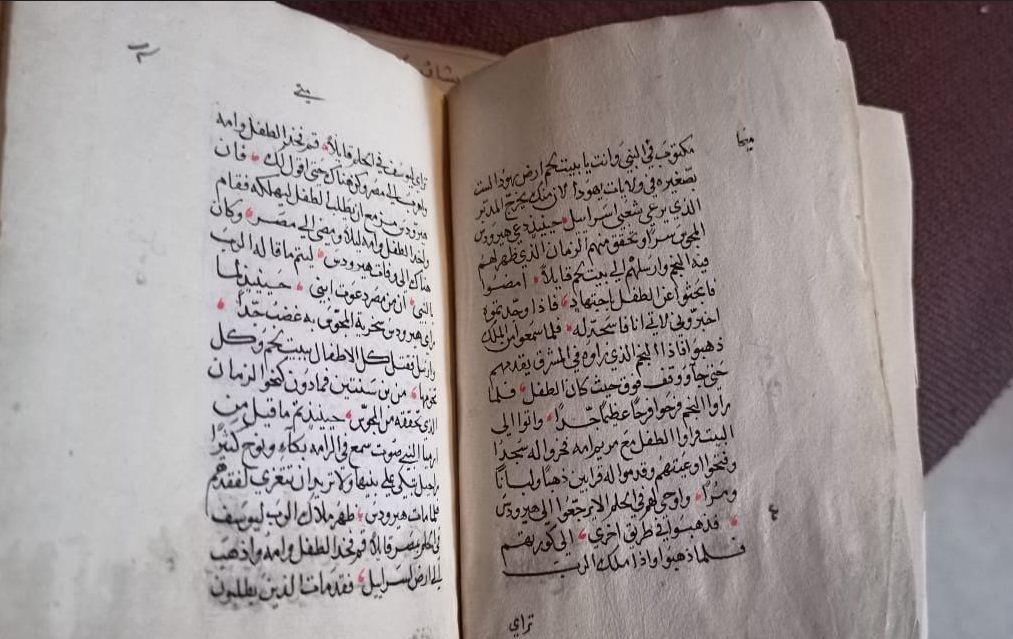 مكتوب في النبي وانت يا بيت لحم ارض يهودا لست
بصغيره في ولايات يهودا لان منك يخرج المدبر
الذي يرعى شعبي اسراسل حينيذ دعى هيرودس
المجوس سراً وتحقق منهم الزمان الذي ظهر لهم
فيه النجم وارسلهم الى بيت لحم قايلاً امضوا
فابحثوا عن الطفل باجتهاد فاذا وجدتموه
اخبروني لاتي انا فاسجد له فلما سمعوا من الملك
ذهبوا فاذا النجم الذي راوه في المشرق يقدمهم
حتى جا ووقف فوق حيث كان الطفل فلما
راوا النجم فرحوا فرحاً عظيماً جداً واتوا الى
البيت فراوا الطفل مع مريم امه فخروا له سجداً
وفتحوا اوعيتهم وقدموا له قرابين ذهباً ولباناً
ومراً واوحى لهم في الحلم الا يرجعوا الى هيرودس
فذهبوا في طريق اخرى الى كورتهم
فلما ذهبوا واذا ملك الرب
تراي
تراي ليوسف في الحلم قايلاً قم فخذ الطفل وامه
واهرب الى مصر وكن هناك حتى اقول لك فان
هيرودس مزمع ان يطلب الطفل ليهلكه فقام
واخذ الطفل وامه ليلاً ومضى الى مصر وكان
هناك الى وفات هيرودس ليتم ما قاله الرب
بالنبي ان من مصر دعوت ابني حينيذ لما
راى هيرودس سخرية المجوس به غضب جداً
وارسل فقتل كل الاطفال ببيت لحم وكل
تخومها من بن سنتين فما دون كنحو الزمان
الذي تحققه من المجوس حينيذ تم ما قيل من
ارميا النبي صوت سمع في الرامه بكاء ونوح كثيراً
راحيل تبكي على بنيها ولا تريد ان تتعزي لفقدهم
فلما مات هيرودس ظهر ملاك الرب ليوسف
في الحلم بمصر قايلاً قم فخذ الطفل وامه واذهب
الى ارض اسراييل فقد مات الذين يطلبون